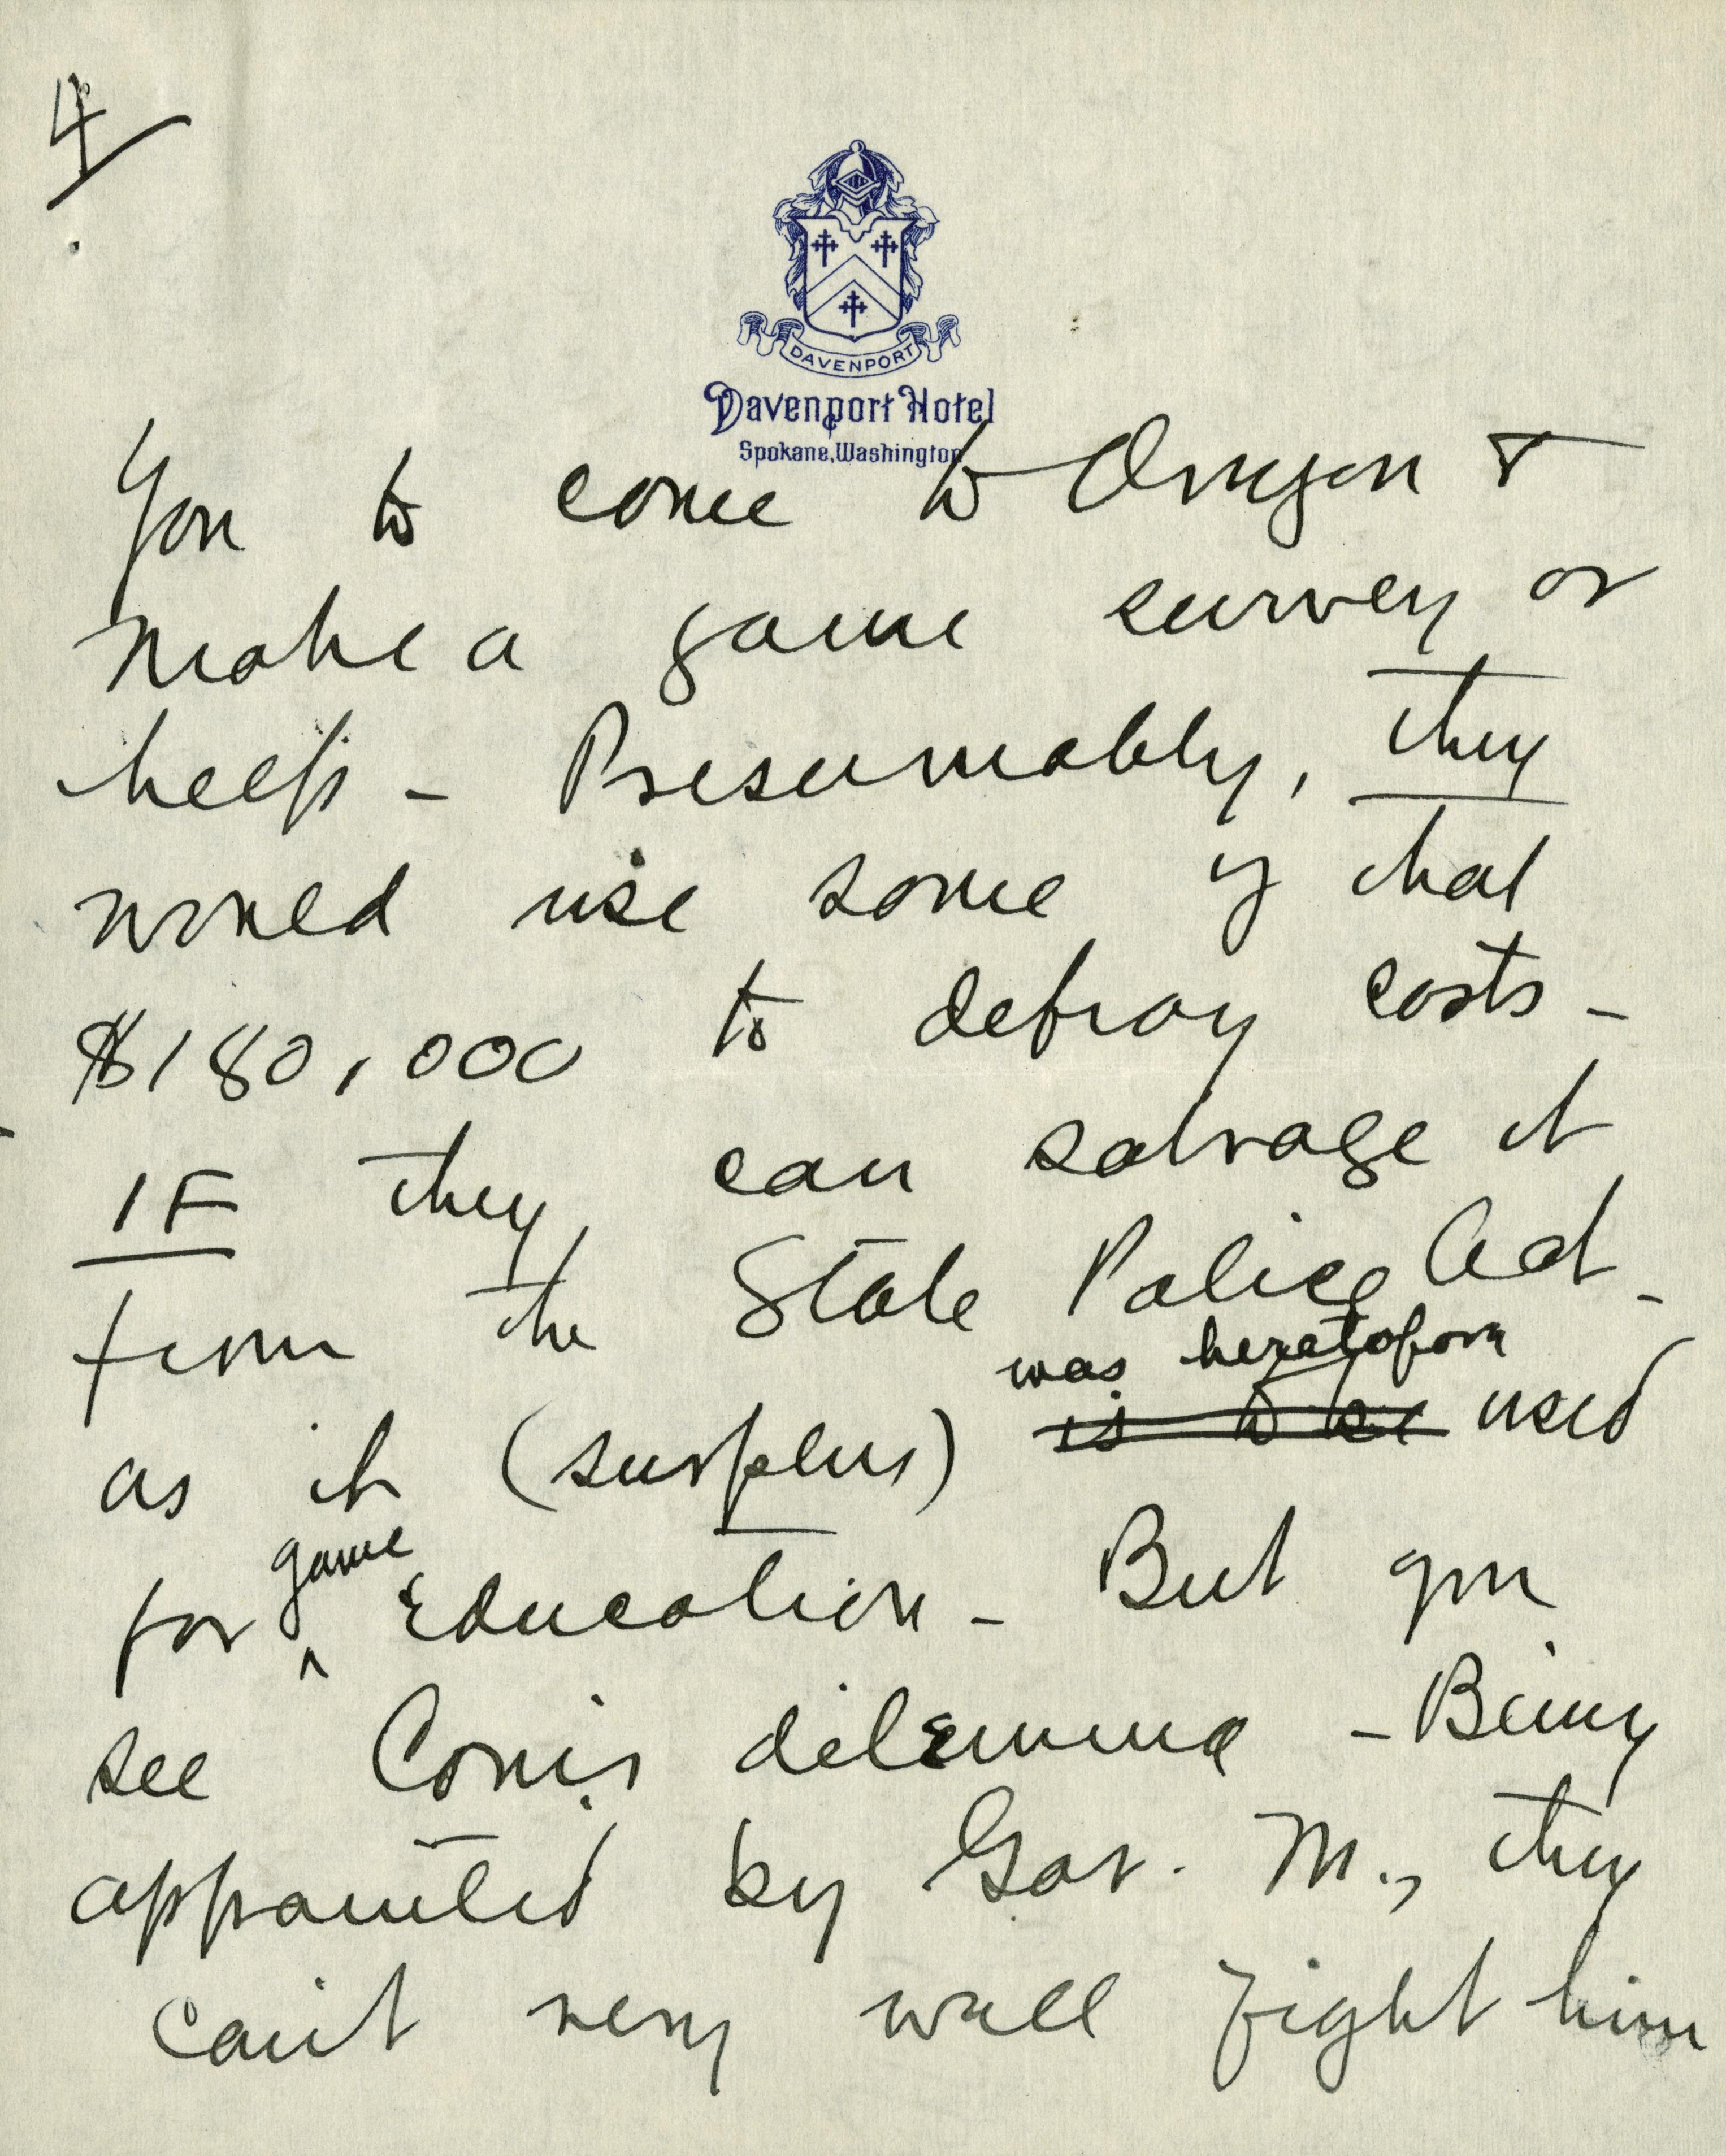 4
DAVENPORT
Davenport Hotel
Spokane, Washington
You to come to Oregon &
make a game survey or
help - Presumably, they
would use some of that
$180,000 to defray costs -
IF they can salvage it
from the State Police Act -
was heretofore
as it (surplus) is to be used
game
for ^ Education - But you
see Com's dilemma - Being
appointed by Gov. M., they
can't very well fight him